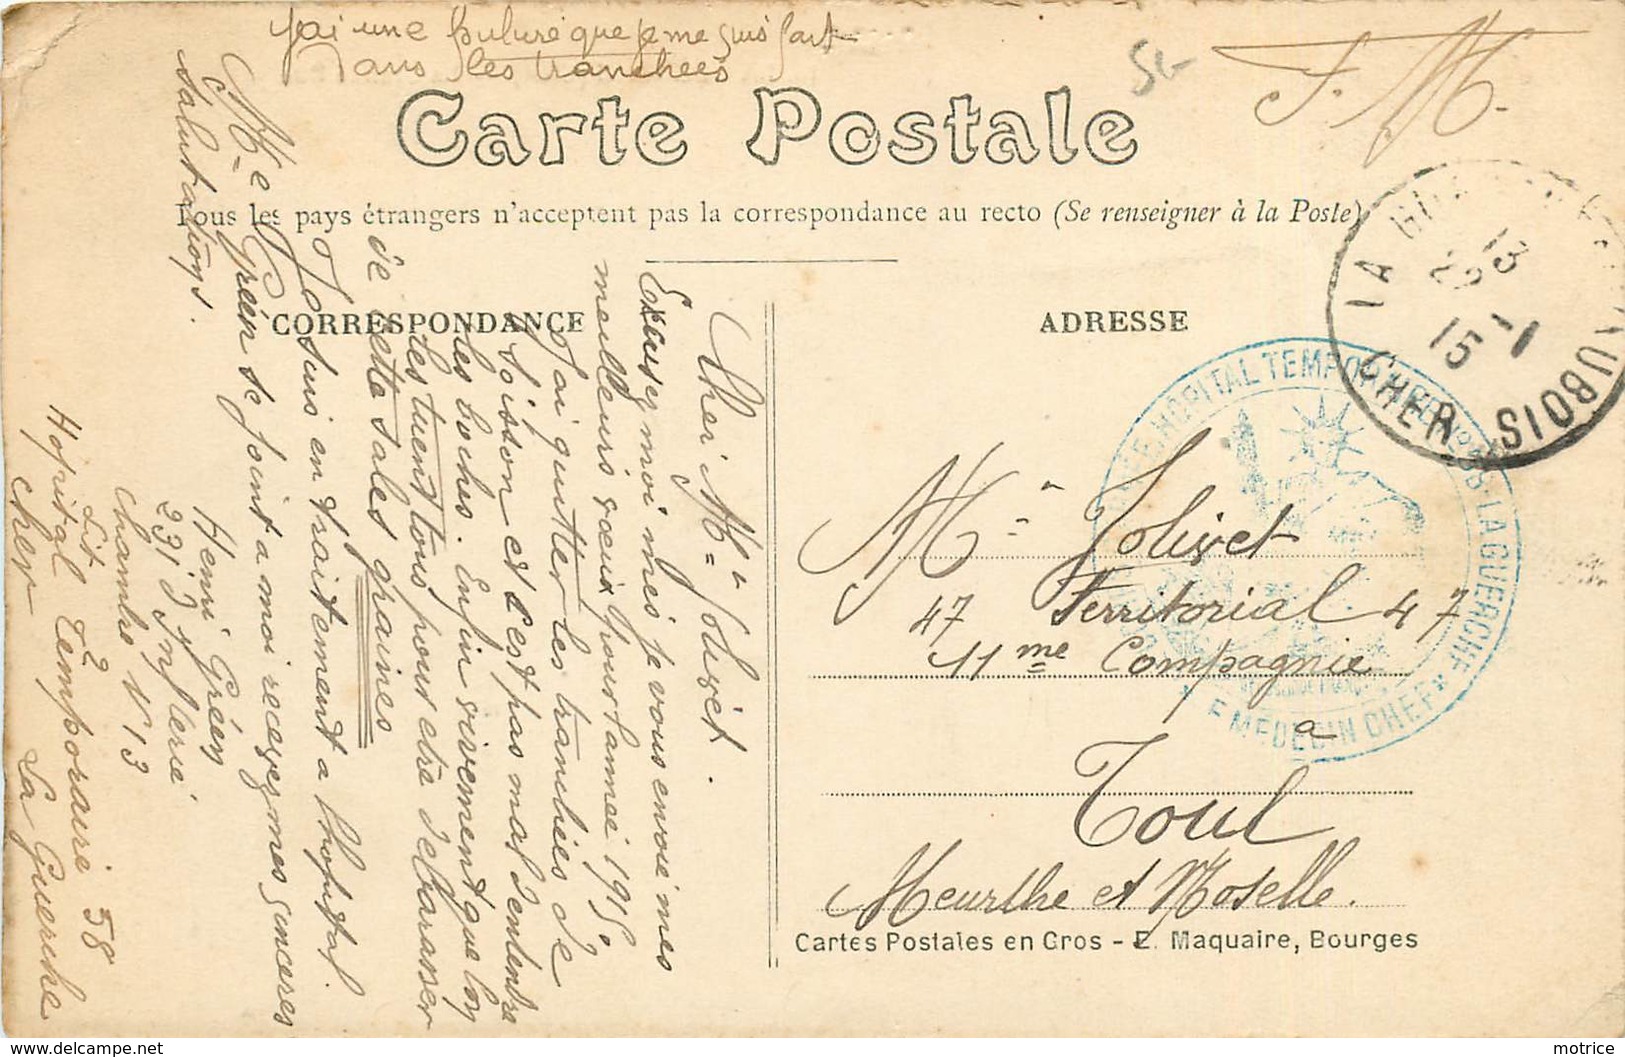 J'ai une bulure que je me suis fait
Dans les tranchees
F. M.
Carte Postale
Tous les pays étrangers n'acceptent pas la correspondance au recto (Se renseigner à la Poste)
CORRESPONDANCE
ADRESSE
Cher Mr Jolivet.
Excusez moi mes je vous envoie mes
meilleurs voeux pour l'année 1915.
J'ai quitter les tranchées de
Soisson et s'est pas mal d'entendre
les boches. Enfin vivement que l'on
les tuent tous pour etre debarasser
de cette sales graines
Je suis en traitement a l'hopital.
Me Gréen se joint a moi recevez mes sinceres
salutations.
Henri Gréen
291 d'Infterie
Chambre N 13
Lit 2
Hopital Temporaire 58
La Guerche
Cher
Mr Jolivet
47 Territorial 47
11me Compagnie
a
Toul
Meurthe et Moselle.
Cartes Postales en Gros - E. Maquaire, Bourges
HOPITAL TEMPORAIRE N° 58 LA GUERCHE
MEDECIN CHEF
LA GUERCHE AUBOIS
CHER
13
22 - 1
15
motrice